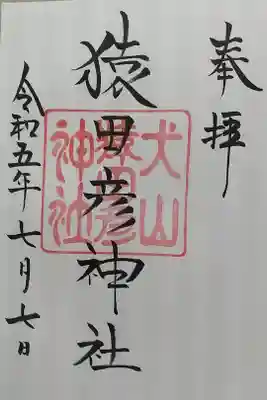 奉拝
猿田彦神社
犬山
猿田彦
神社
令和五年七月七日